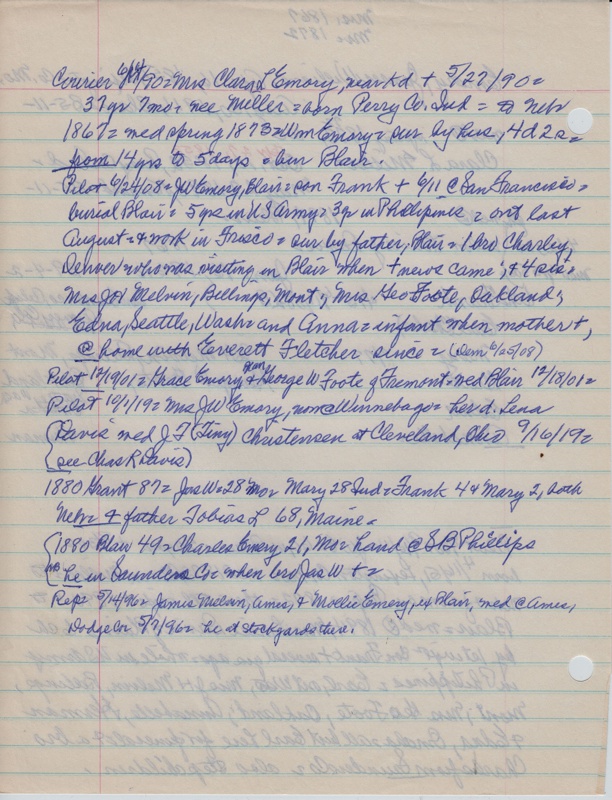 Courier 6/14/90 = Mrs Clara L Emory, near Kd + 5/27/90 =
37 yr 7 mo = nee Miller = born Perry Co. Ind = to Nebr
1867 = med spring 1873 = Wm Emory = sur by hus, 4 d 2 s =
from 14 yrs to 5 days = bur Blair.
Pilot 6/24/08 = JW Emory, Blair = son Frank + 6/11 @ San Francisco =
burial Blair = 5 yrs in US Army = 3 yr in Phillipines = out last
August = & work in Frisco = sur by father, Blair = 1 bro Charley,
Denver who was visiting in Blair when + news came; & 4 sis =
Mrs Jas Melvin, Billings, Mont; Mrs Geo Foote, Oakland;
Edna, Seattle, Wash = and Anna = infant when mother +,
@ home with Everett Fletcher since = (Dem 6/25/08)
Pilot 12/19/01 = Grace Emory & George W Foote of Fremont = med Blair 12/18/01 =
Pilot 10/1/19 = Mrs JW Emory, now @ Winnebago = her d. Lena
(Davis med J F (Tiny) Christensen at Cleveland, Ohio 9/16/19 =
see Chas R Davis)
1880 Grant 87 = Jas W = 28 Mo = Mary 28 Ind = Frank 4 & Mary 2, both
Nebr = & father Tobias L 68, Maine =
1880 Blair 49 = Charles Emery 21, Mo = hand @ S B Phillips
he in Saunders Co = when bro Jas W + =
Rep = 5/14/96 = James Melvin, Ames, & Mollie Emery, ex Blair, med @ Ames,
Dodge Co 5/7/96 = he at stockyards there.